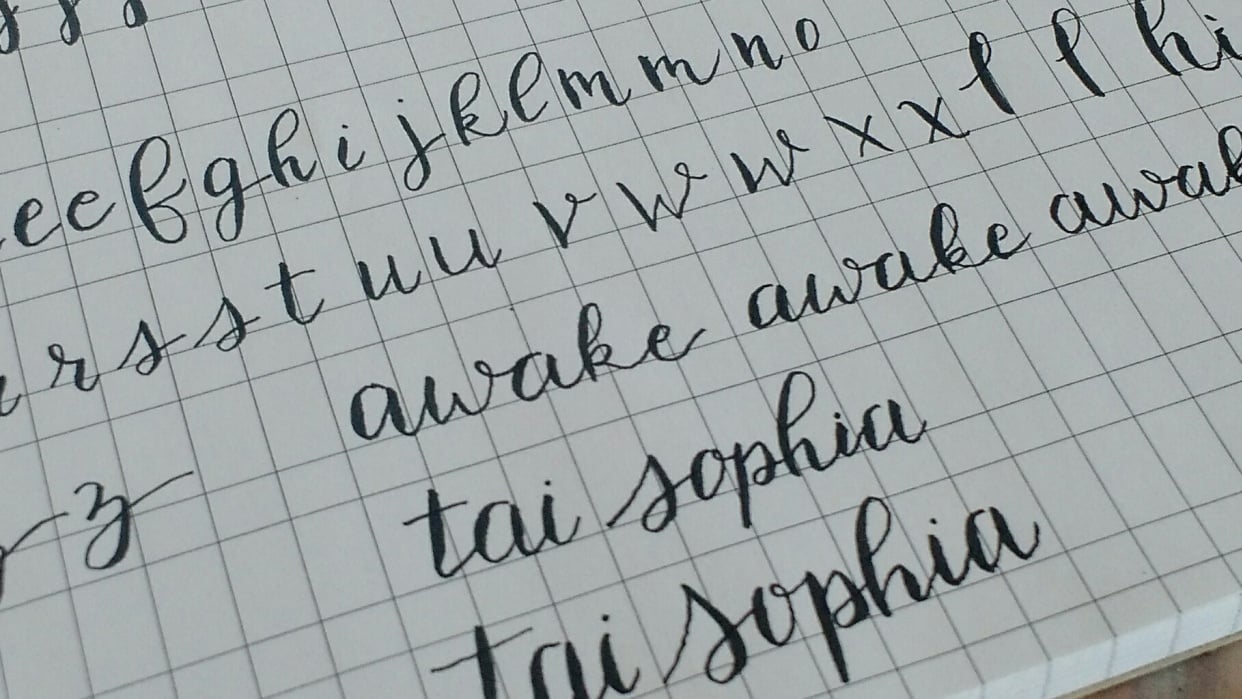 e e f g h i j k l m m n o
r s s t u u v w w x x l l hi
awake awake awake
z
tai sophia
tai sophia